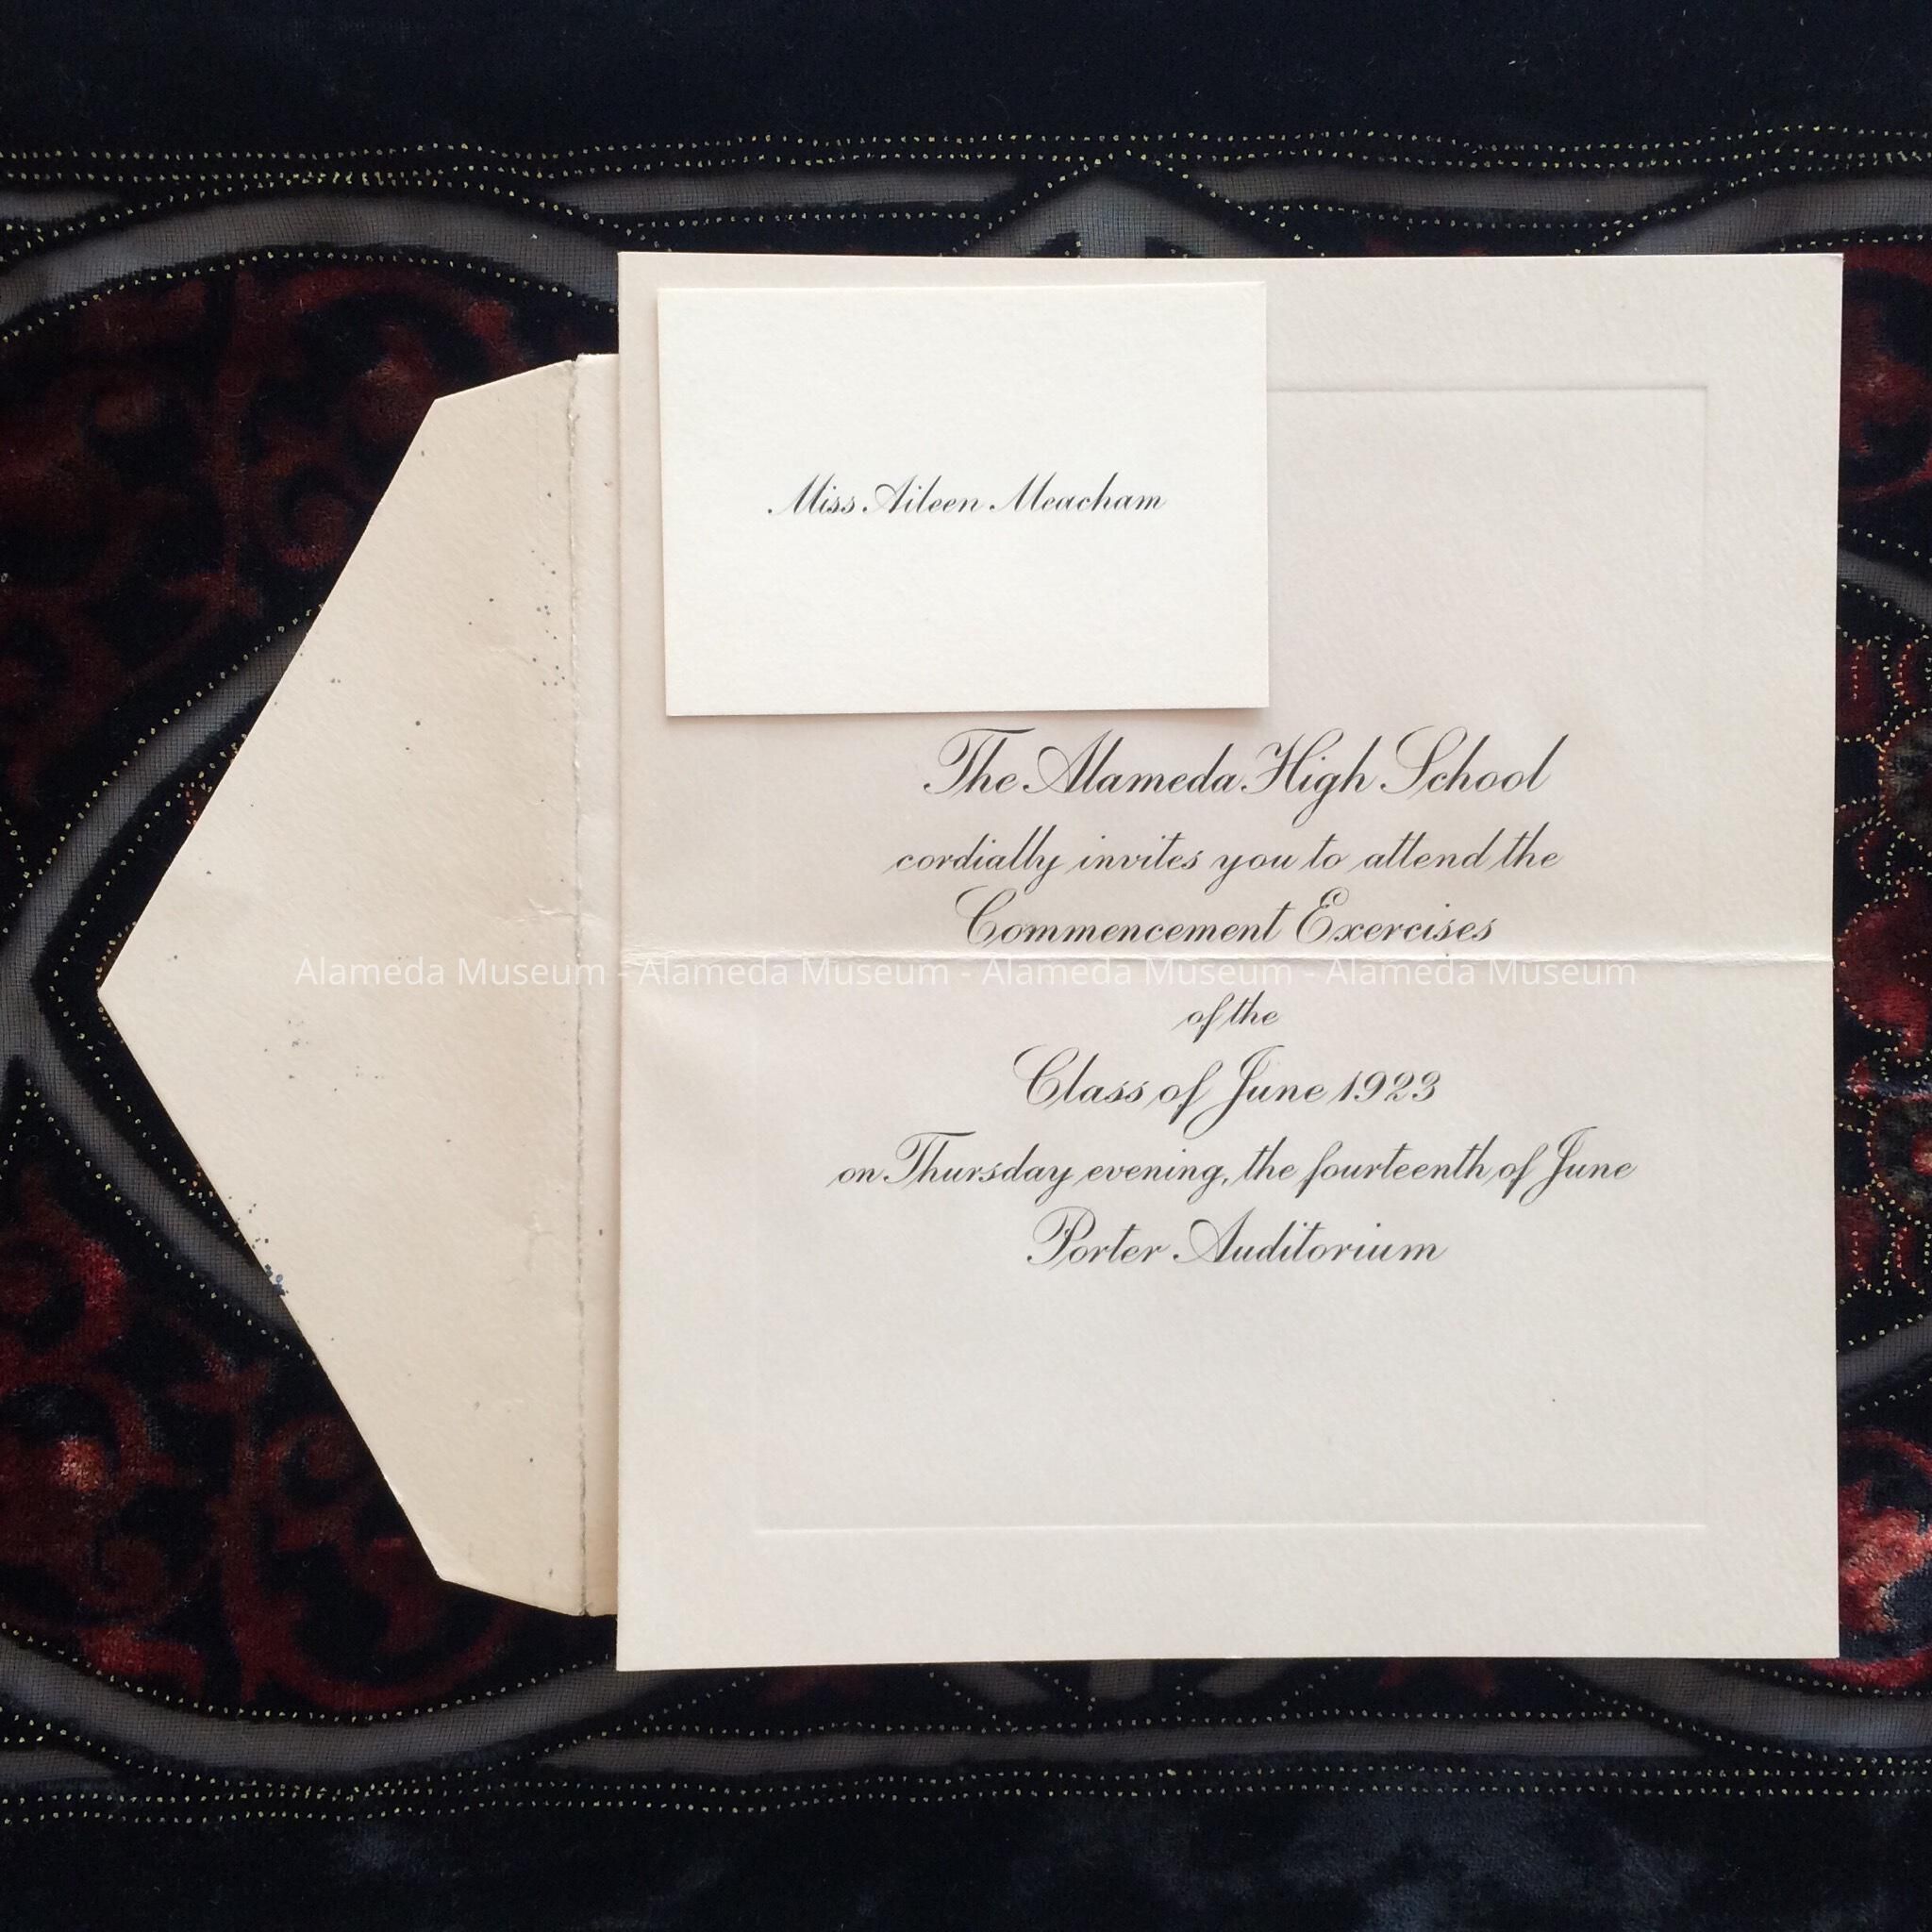 Miss Aileen Meacham
The Alameda High School
cordially invites you to attend the
Commencement Exercises
Alameda Museum - Alameda Museum - Alameda Museum - Alameda Museum
of the
Class of June 1923
on Thursday evening, the fourteenth of June
Porter Auditorium